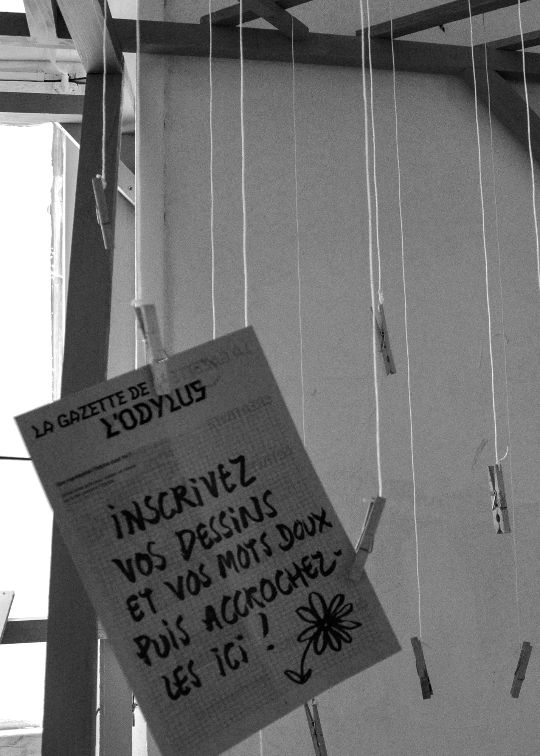 LA GAZETTE DE
L'ODYLUS
iNSCRiVEZ
VOS DESSiNS
ET VOS MOTS DOUX
PUiS ACCROCHEZ-
LES iCi !